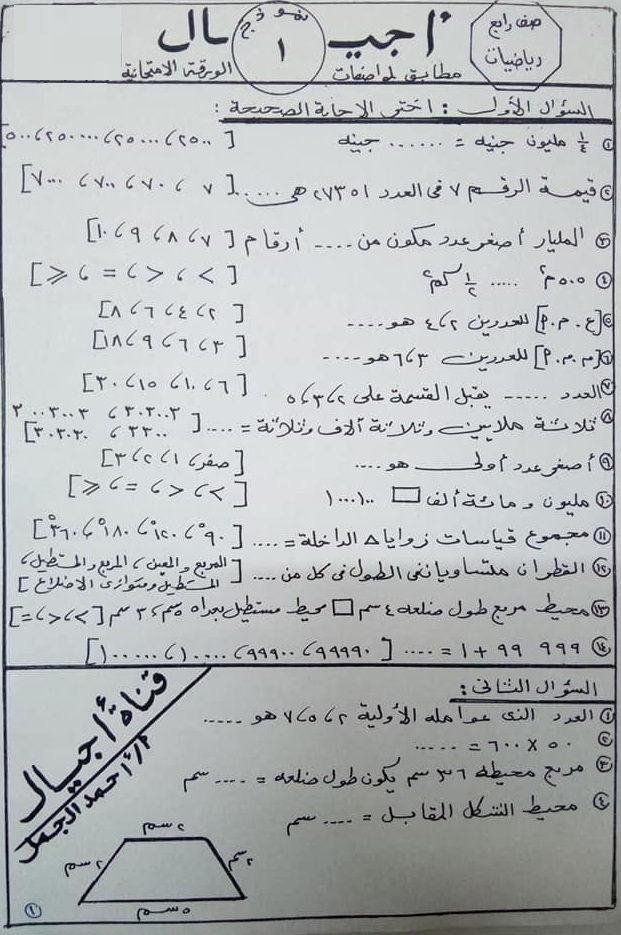 صف رابع
رياضيات
أجيـــال
نموذج
١
مطابق لمواصفات الورقة الامتحانية
السؤال الأول : اختر الاجابة الصحيحة :
① ¼ مليون جنيه = ...... جنيه [ ٢٥٠٠ ، ٢٥٠٠٠ ، ٢٥٠٠٠٠ ، ٥٠٠
② قيمة الرقم ٧ فى العدد ٢٧٣٥١ هى ..... [ ٧ ، ٧٠ ، ٧٠٠ ، ٧٠٠٠ ]
③ المليار أصغر عدد مكون من .... أرقام [ ٧ ، ٨ ، ٩ ، ١٠ ]
④ ٥٠٠م² ..... ½ كم² [ > ، < ، = ، ⩾ ]
⑤ [ع . م . P] للعددين ٢ ، ٤ هو .... [ ٢ ، ٤ ، ٦ ، ٨ ]
⑥ [م . م . P] للعددين ٣ ، ٦ هو .... [ ٣ ، ٦ ، ٩ ، ١٨ ]
⑦ العدد ..... يقبل القسمة على ٢ ، ٣ ، ٥ [ ٦ ، ١٠ ، ١٥ ، ٣٠ ]
⑧ ثلاثة ملايين وثلاثة آلاف وثلاثة = .... [ ٣٠٣٠٠٣ ، ٣٠٠٣٠٠٣
٣٣٠٠ ، ٣٠٣٠٣٠ ]
⑨ أصغر عدد أولى هو .... [ صفر ، ١ ، ٢ ، ٣ ]
⑩ مليون و مائة ألف □ ١٠٠٠١٠٠ [ > ، < ، = ، ⩾ ]
⑪ مجموع قياسات زوايا △ الداخلة = .... [ ٩٠° ، ١٢٠° ، ١٨٠° ، ٣٦٠° ]
⑫ القطران متساويان فى الطول فى كل من .... [ المربع والمعين ، المربع والمستطيل ،
المستطيل ومتوازى الاضلاع ]
⑬ محيط مربع طول ضلعه ٤ سم □ محيط مستطيل بعداه ٥سم ، ٣ سم [ > ، < ، = ]
⑭ ٩٩٩ ٩٩ + ١ = .... [ ٩٩٩٩٠ ، ٩٩٩٠٠ ، ١٠٠٠٠ ، ١٠٠٠٠٠ ]
السؤال الثانى :
① العدد الذى عوامله الأولية ٢ ، ٥ ، ٧ هو .....
② ٥٠ × ٦٠٠ = .....
③ مربع محيطه ٣٦ سم يكون طول ضلعه = .... سم
④ محيط الشكل المقابل = .... سم
قناة أجيال
أ/ احمد الجمل
٢ سم
٢ سم
٢ سم
٥ سم
①